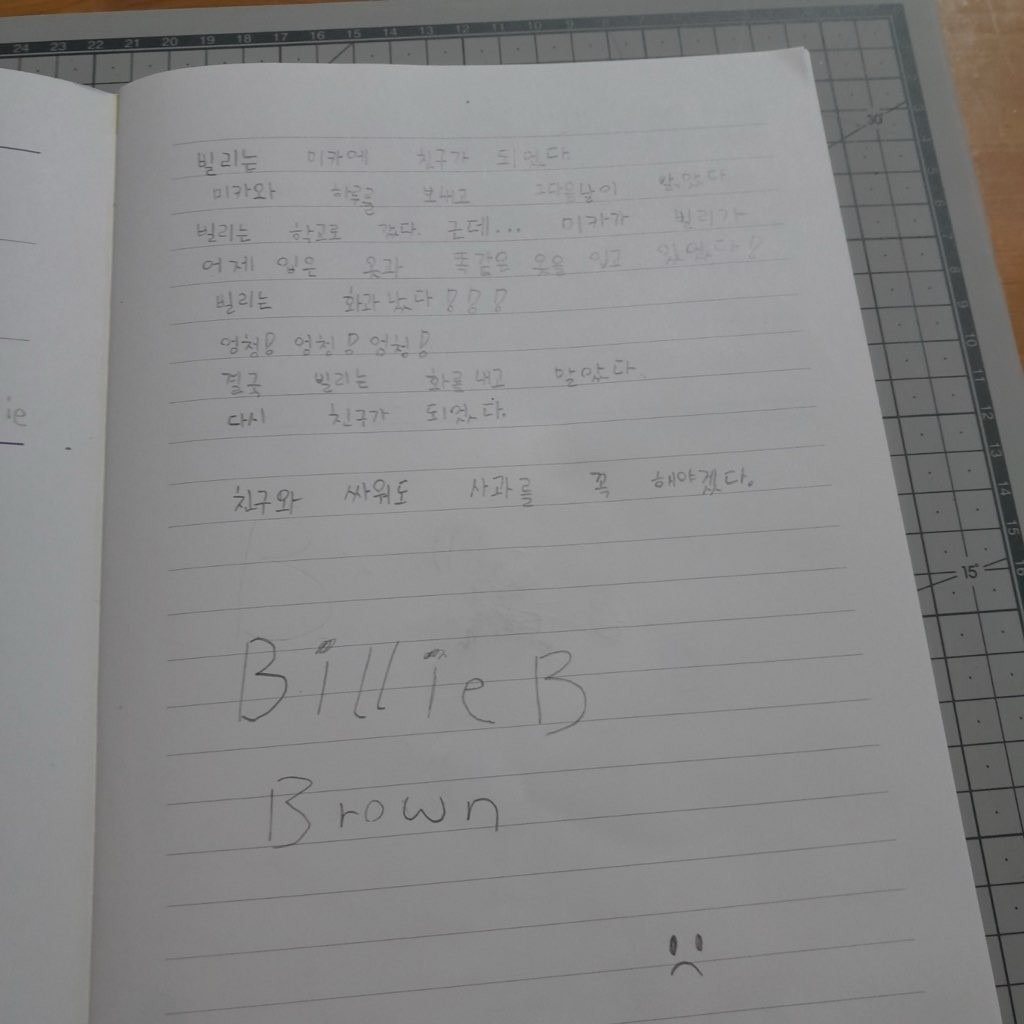 24 23 22 21 20 19 18 17 16 15 14 13 12 11 10 9 8 7
빌리는 미카에 친구가 되었다
미카와 하루를 보내고 그다음날이 밝았다
빌리는 학교로 갔다. 근데... 미카가 빌리가
어제 입은 옷과 똑같은 옷을 입고 있었다!
빌리는 화과 났다!!!
엄청! 엄청! 엄청!
결국 빌리는 화를 내고 말았다.
다시 친구가 되었다.
친구와 싸워도 사과를 꼭 해야겠다.
Billie B
Brown
ie
10
15
9 10 11 12 13 14 15 16